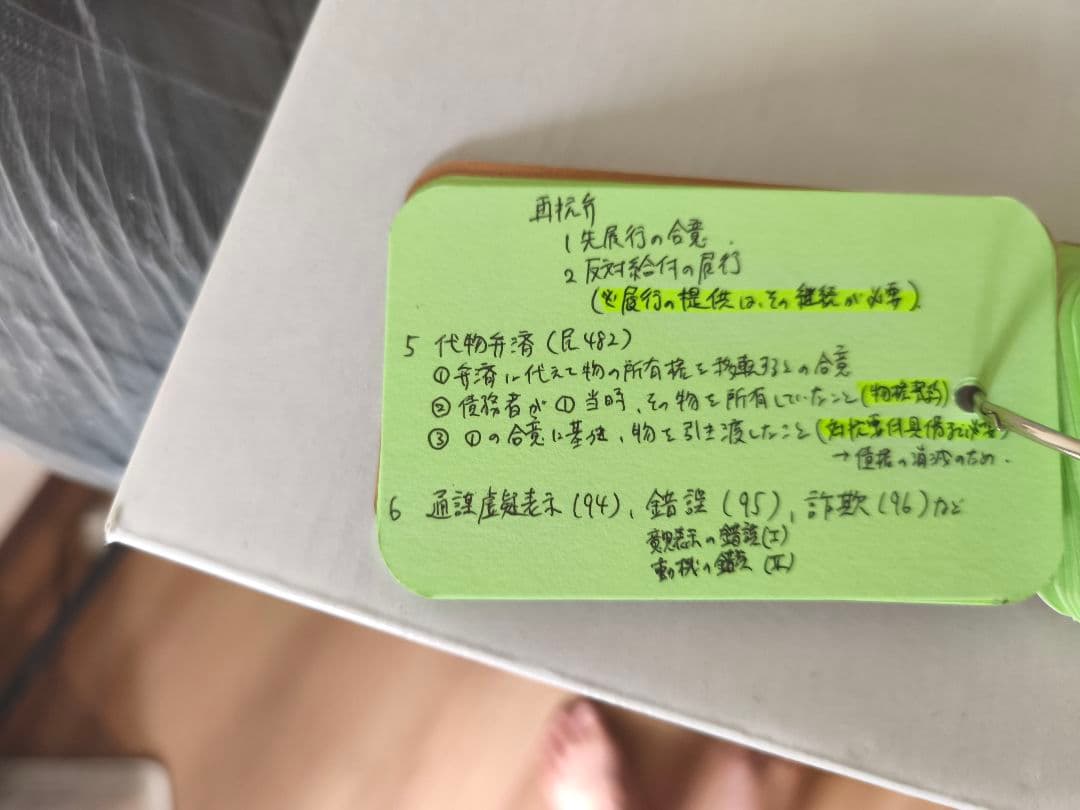 再抗弁
1 先履行の合意.
2 反対給付の履行
(※履行の提供は、その継続が必要)
5 代物弁済(民482)
① 弁済に代えて物の所有権を移転するとの合意
② 債務者が①当時、その物を所有していたこと(物権
③ ①の合意に基き、物を引き渡したこと(対抗要件具備まで必要)
→債権の消滅のため.
6 通謀虚疑表示(94)、錯誤(95)、詐欺(96)など
意思表示の錯誤(I)
動機の錯誤(II)